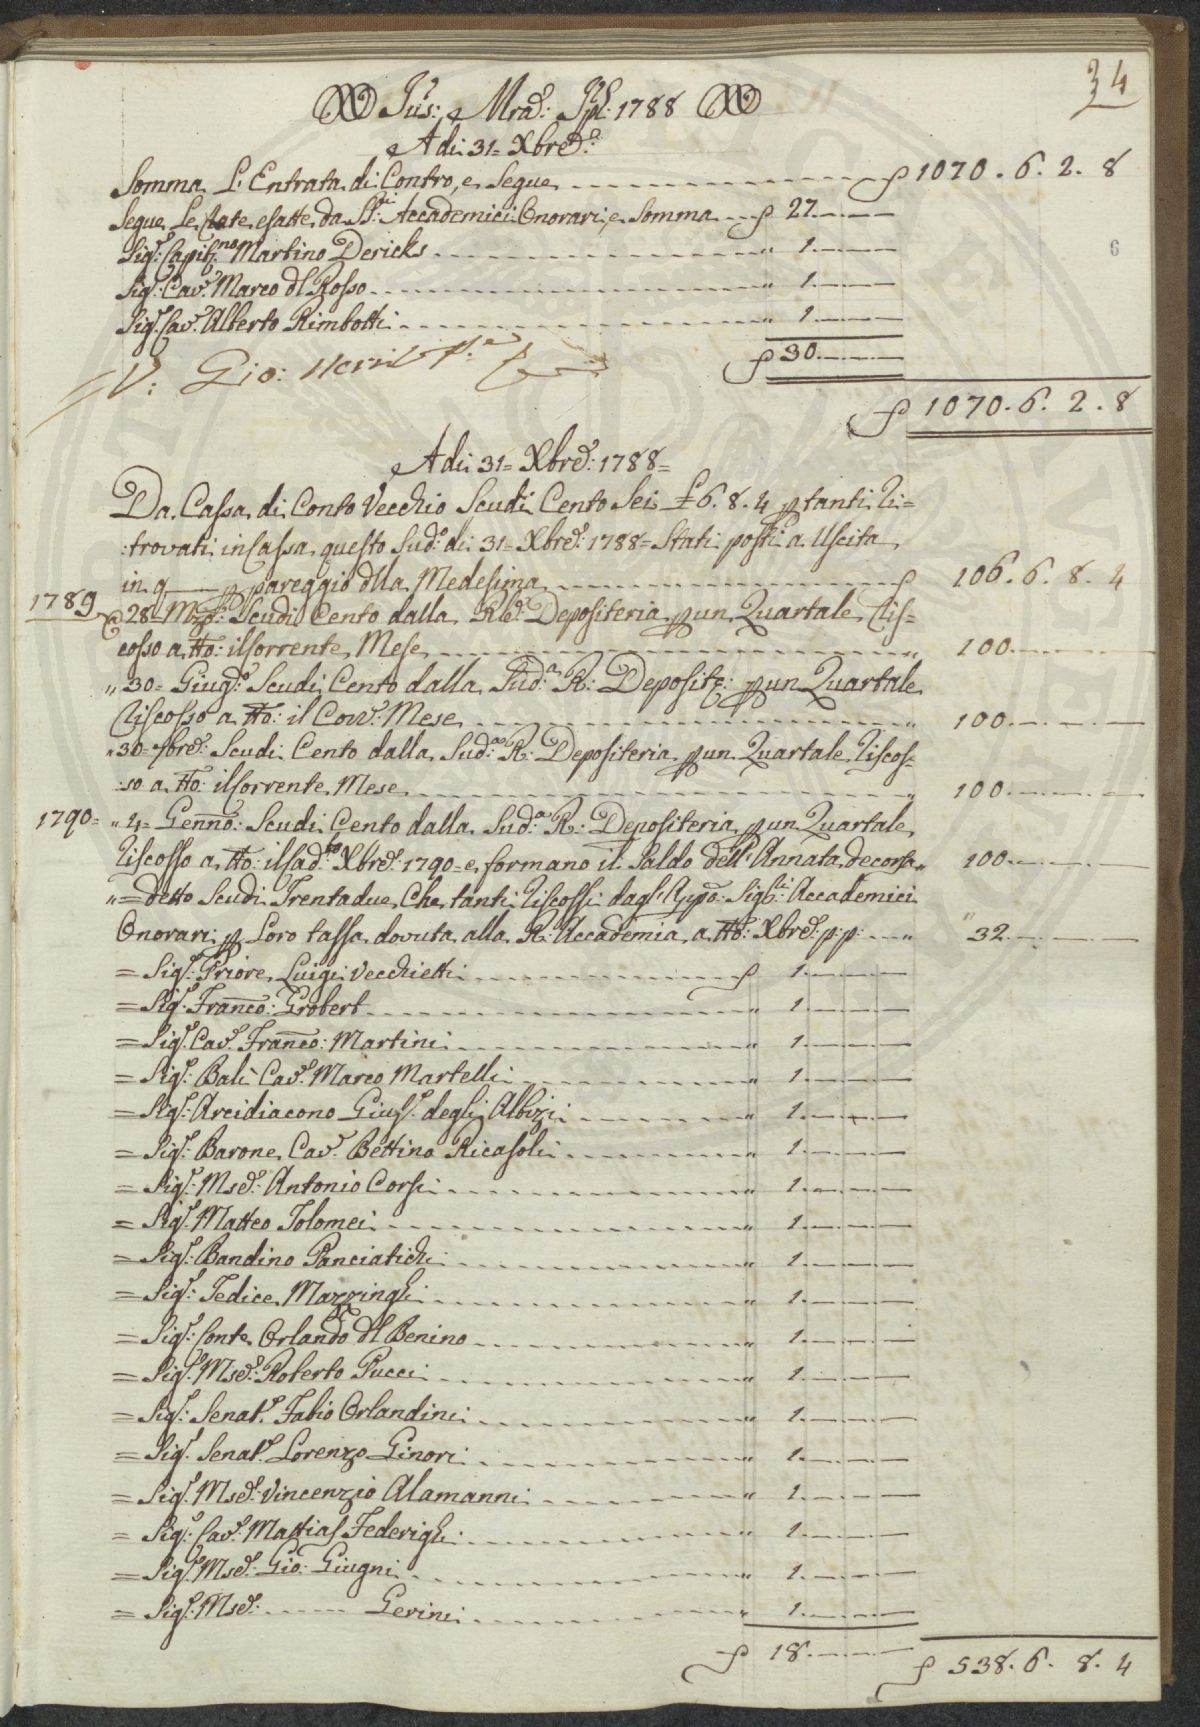 34
Jus: Mrãe: Spl: 1788
Adi: 31= Xbre:
Somma L'Entrata di Contro, e Segue ƒ 1070. 6. 2. 8
Segue Le Rate esatte da SSri: Accademici Onorari, e Somma ƒ 27
Sigr: Capitno Martino Dericks " 1
Sigr: Cavr: Marco dl Rosso " 1
Sigr: Cavr: Alberto Rimbotti " 1
V: Gio:
ƒ 30
ƒ 1070. 6. 2. 8
Adi: 31= Xbre: 1788=
Da Cassa di Conto Vecchio Scudi Cento Sei £ 6. 8. 4 p tanti ri=
:trovati in Cassa questo Sudo: di 31= Xbre: 1788= Stati posti a Uscita
in q p pareggio dlla Medesima ƒ 106. 6. 8. 4
1789 @ 28= Mzo: Scudi Cento dalla Rle: Depositeria p un Quartale Ris=
cosso a tto: il Corrente Mese " 100
" 30= Giugo: Scudi Cento dalla Suda: R: Deposita: p un Quartale
Riscosso a tto: il Corr: Mese " 100
" 30= 7bre: Scudi Cento dalla Suda: R: Depositeria p un Quartale riscos=
:so a tto: il Corrente Mese " 100
1790= " 4= Genno: Scudi Cento dalla Suda: R: Depositeria p un Quartale
Riscosso a tto: il Cadto: Xbre: 1790= e formano il Saldo dell'Annata decorsa " 100
" = detto Scudi Trentadue Che tanti riscossi dagl'Appo: Sigri: Accademici
Onorari p Loro tassa dovuta alla R: Accademia a tto: Xbre: p:p: " 32
= Sigr: Priore Luigi Vecchietti ƒ 1
= Sigr: Franco: Grobert " 1
= Sigr: Cavr: Franco: Martini " 1
= Sigr: Balì Cavr: Marco Martelli " 1
= Sigr: Arcidiacono Giuspe: degli Albizi " 1
= Sigr: Barone Cavr: Bettino Ricasoli " 1
= Sigr: Mse: Antonio Corsi " 1
= Sigr: Matteo Tolomei " 1
= Sigr: Bandino Panciatichi " 1
= Sigr: Tedice Mazzinghi " 1
= Sigr: Conte Orlando dl Benino " 1
= Sigr: Mse: Roberto Pucci " 1
= Sigr: Senatr: Fabio Orlandini " 1
= Sigr: Senatr: Lorenzo Ginori " 1
= Sigr: Mse: Vincenzio Alamanni " 1
= Sigr: Cavr: Mattias Federighi " 1
= Sigr: Mse: Gio: Giugni " 1
= Sigr: Mse: Gerini " 1
ƒ 18 ƒ 538. 6. 8. 4
6